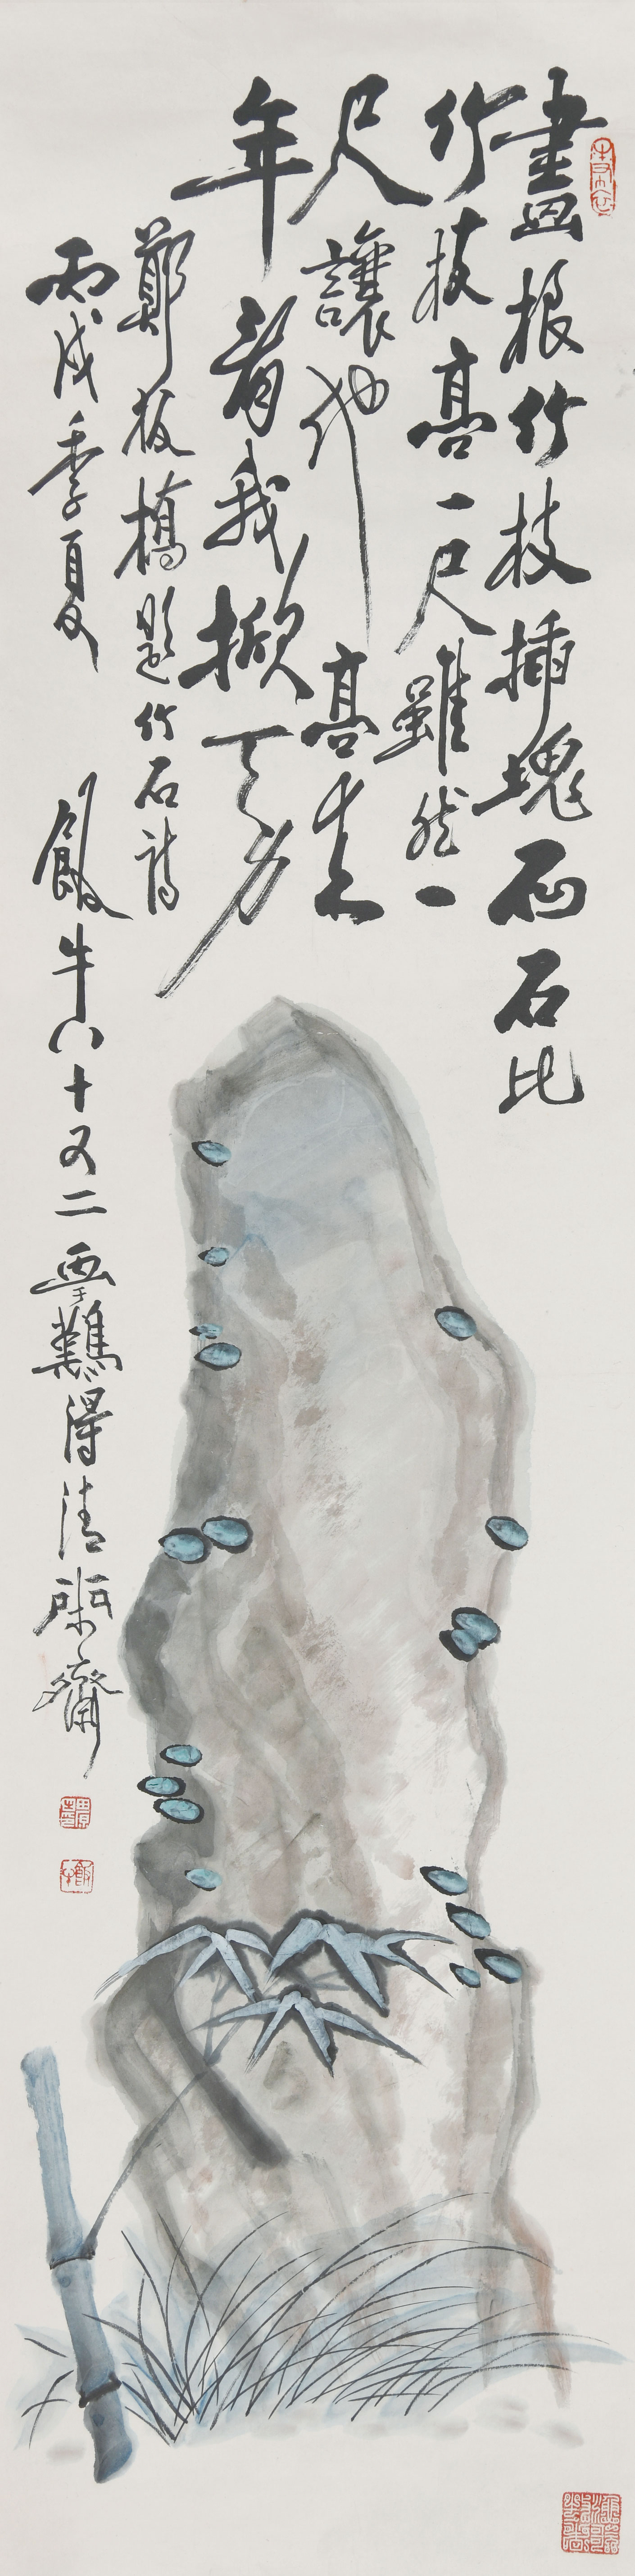 畫根竹枝插塊石石比
竹枝高一尺雖然一
尺讓他高来
年看我掀天力
鄭板橋題竹石詩
丙戌季夏 飯牛八十又二画于難得清閑齋